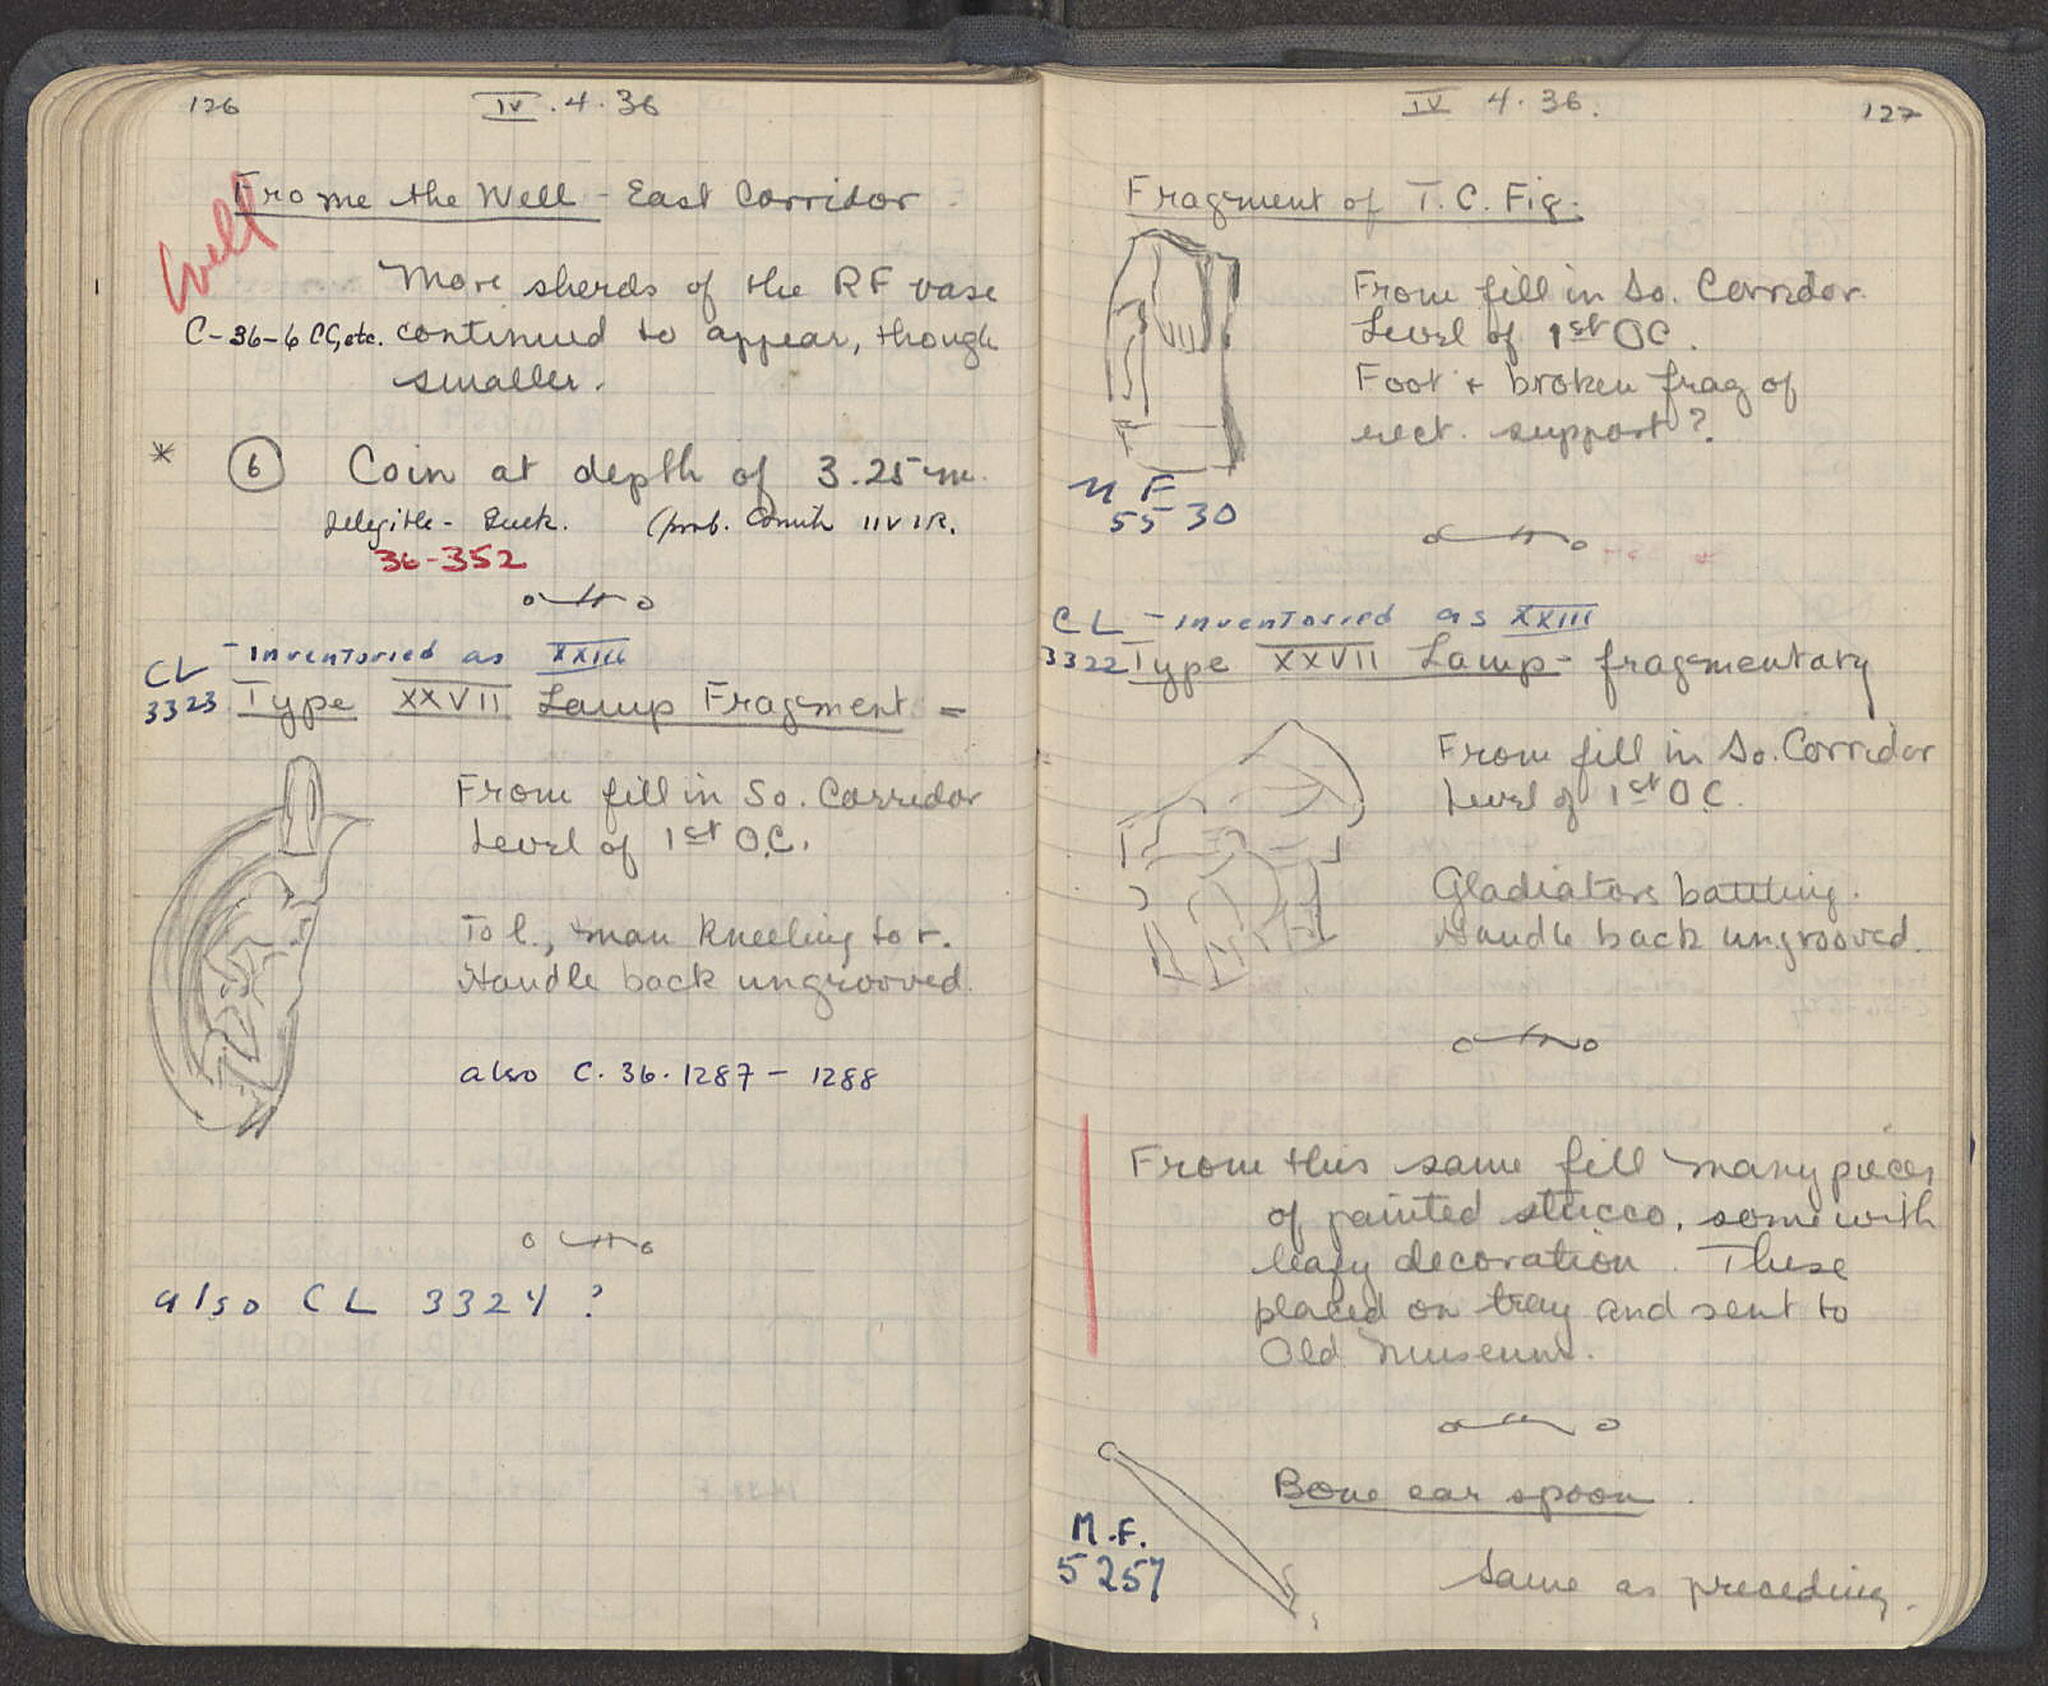 126
IV . 4 . 36
Well
Frome the Well - East Corridor
More sherds of the RF vase
C-36-6 CC, etc. continued to appear, though
smaller.
* 6 Coin at depth of 3.25 m.
(prob. Corinth IIVIR.
36-352
- Inventoried as XXIII
CL
3323 Type XXVII Lamp Fragment -
From fill in So. Corridor
Level of 1st O.C.
To l., man kneeling to r.
Handle back ungrooved.
also C. 36. 1287 - 1288
also CL 3324 ?
IV 4 . 36.
127
Fragment of T.C. Fig.
From fill in So. Corridor
Level of 1st OC.
Foot + broken frag of
rect. support?
MF
5530
CL - Inventoried as XXIII
3322 Type XXVII Lamp - fragmentary
From fill in So. Corridor
Level of 1st OC.
Gladiators battling.
Handle back ungrooved.
From this same fill many pieces
of painted stucco, some with
leafy decoration. These
placed on tray and sent to
Old Museum.
Bone ear spoon.
M.F.
5257
Same as preceding.